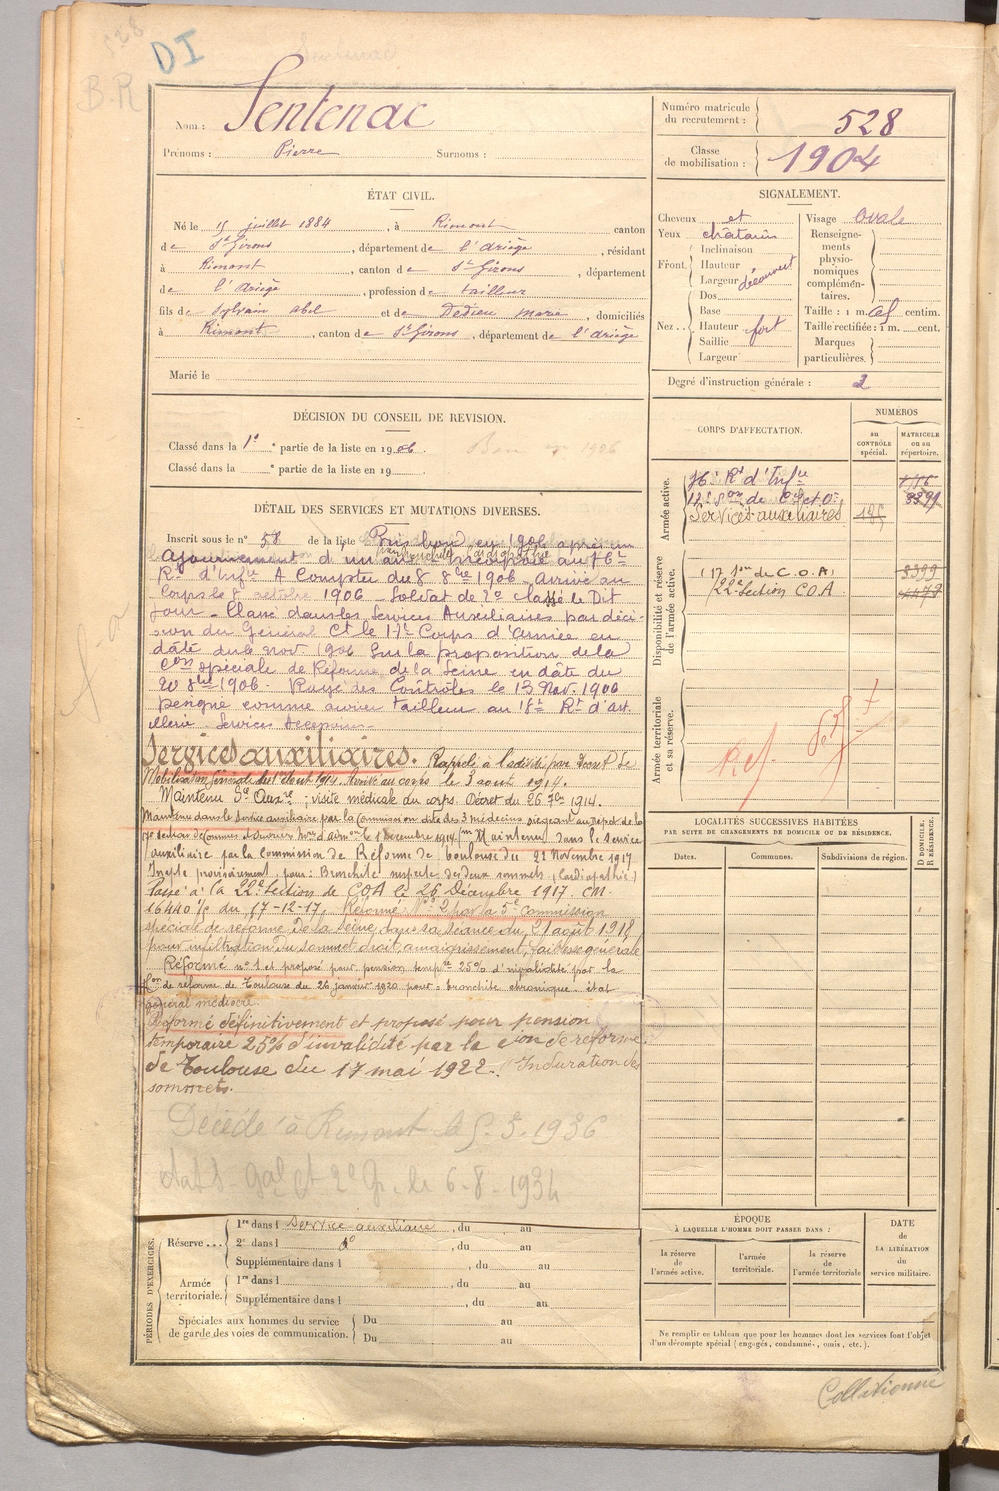 DI
B.R
Nom : Sentenac
Prénoms : Pierre Surnoms :
Numéro matricule du recrutement : 528
Classe de mobilisation : 1904
ÉTAT CIVIL.
Né le 15 juillet 1884, à Rimont canton
de St Girons, département de l'Ariège, résidant
à Rimont, canton de St Girons, département
de l'Ariège, profession de tailleur
fils de Sylvain Abel et de Dedieu Marie, domiciliés
à Rimont, canton de St Girons, département de l'Ariège
Marié le
SIGNALEMENT.
Cheveux et
Yeux châtains
Front. Inclinaison
Hauteur
Largeur découvert
Nez.. Dos
Base
Hauteur fort
Saillie
Largeur
Visage ovale
Renseignements physionomiques complémentaires.
Taille : 1 m. centim.
Taille rectifiée : 1 m. cent.
Marques particulières.
Degré d'instruction générale : 2
DÉCISION DU CONSEIL DE REVISION.
Classé dans la 1e partie de la liste en 1906.
Classé dans la e partie de la liste en 19
CORPS D'AFFECTATION.
NUMÉROS
au CONTRÔLE spécial.
MATRICULE ou au répertoire.
Armée active.
Services auxiliaires
Disponibilité et réserve de l'armée active.
(17 Son de C.O.A) 8399
22e Section C.O.A
Armée territoriale et sa réserve.
Ref.
DÉTAIL DES SERVICES ET MUTATIONS DIVERSES.
Inscrit sous le n° 58 de la liste Pris bon en 1906 après un
ajournement d'un an. Incorporé au 76e
Rt d'Infie A Compter du 8 8bre 1906. Arrivé au
Corps le 8 octobre 1906 - Soldat de 2e classe le Dit
jour. - Classé dans les Services Auxiliaires par déci-
sion du Général Ct le 17e Corps d'Armée en
date du 6 nov 1906 Sur la proposition de la
Con spéciale de Réforme de la Seine en date du
20 8bre 1906. Rayé des Contrôles le 13 Nov. 1906
comme ouvrier tailleur au 18e Rt d'art
illerie.
Services auxiliaires. Rappelé à l'activité par
Mobilisation Générale du 1er Août 1914. Arrivé au corps le 3 août 1914.
Maintenu Sce Auxre ; visite médicale du corps. Décret du 26 7bre 1914.
Maintenu dans le service auxiliaire par la Commission dite des 3 médecins siégeant au Dépôt de la
17e Section de Commis et Ouvriers le 1 Décembre 1914. Maintenu dans le service
auxiliaire par la Commission de Réforme de Toulouse du 22 Novembre 1917
Inapte provisoirement pour : Bronchite suspecte des deux sommets (Cardiopathie)
Passé à la 22e Section de COA le 26 Décembre 1917. CM.
16440 1/5 du 17-12-17, Réformé n° 2 par la 5e commission
spéciale de réforme de la Seine dans sa séance du 21 août 1918
pour infiltration du sommet droit, amaigrissement, faiblesse générale
Réformé n° 1 et proposé pour pension tempre 25% d'invalidité par la
Con de réforme de Toulouse du 26 janvier 1920 pour : bronchite chronique. état
général médiocre.
Réformé définitivement et proposé pour pension
temporaire 25% d'invalidité par la cion de réforme
de Toulouse du 17 mai 1922. Induration des
sommets.
Décédé à Rimont le 5.3.1936
le 6-8-1934
LOCALITÉS SUCCESSIVES HABITÉES
PAR SUITE DE CHANGEMENTS DE DOMICILE OU DE RÉSIDENCE.
Dates. Communes. Subdivisions de région.
D DOMICILE.
R RÉSIDENCE.
PÉRIODES D'EXERCICES.
Réserve... 1re dans l Service auxiliaire, du au
2e dans l do, du au
Supplémentaire dans l, du au
Armée territoriale. 1re dans l, du au
Supplémentaire dans l, du au
Spéciales aux hommes du service
de garde des voies de communication. Du au
Du au
ÉPOQUE
À LAQUELLE L'HOMME DOIT PASSER DANS :
la réserve de l'armée active.
l'armée territoriale.
la réserve de l'armée territoriale
DATE
de
LA LIBÉRATION
du
service militaire.
Ne remplir ce tableau que pour les hommes dont les services font l'objet
d'un décompte spécial (engagés, condamnés, omis, etc.).
Collationné